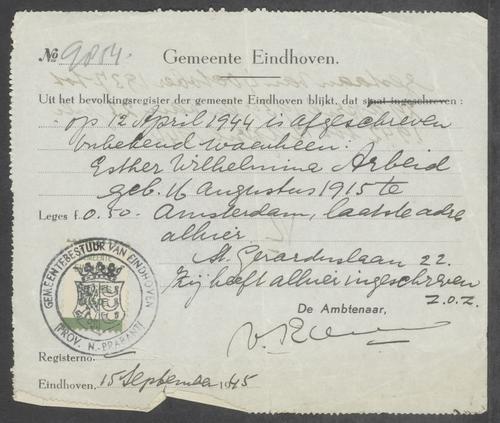 № 9854. Gemeente Eindhoven.
Uit het bevolkingsregister der gemeente Eindhoven blijkt, dat staat ingeschreven :
op 12 April 1944 is afgeschreven
onbekend waarheen:
Esther Wilhelmina Arbeid
geb. 16 Augustus 1915 te
Leges f. 0.50. Amsterdam, laatste adres
alhier
St. Gerarduslaan 22.
Zij heeft alhier ingeschreven
z.o.z.
GEMEENTEBESTUUR VAN EINDHOVEN
(PROV. N.-BRABANT)
De Ambtenaar,
Registerno.
Eindhoven, 15 September 1945